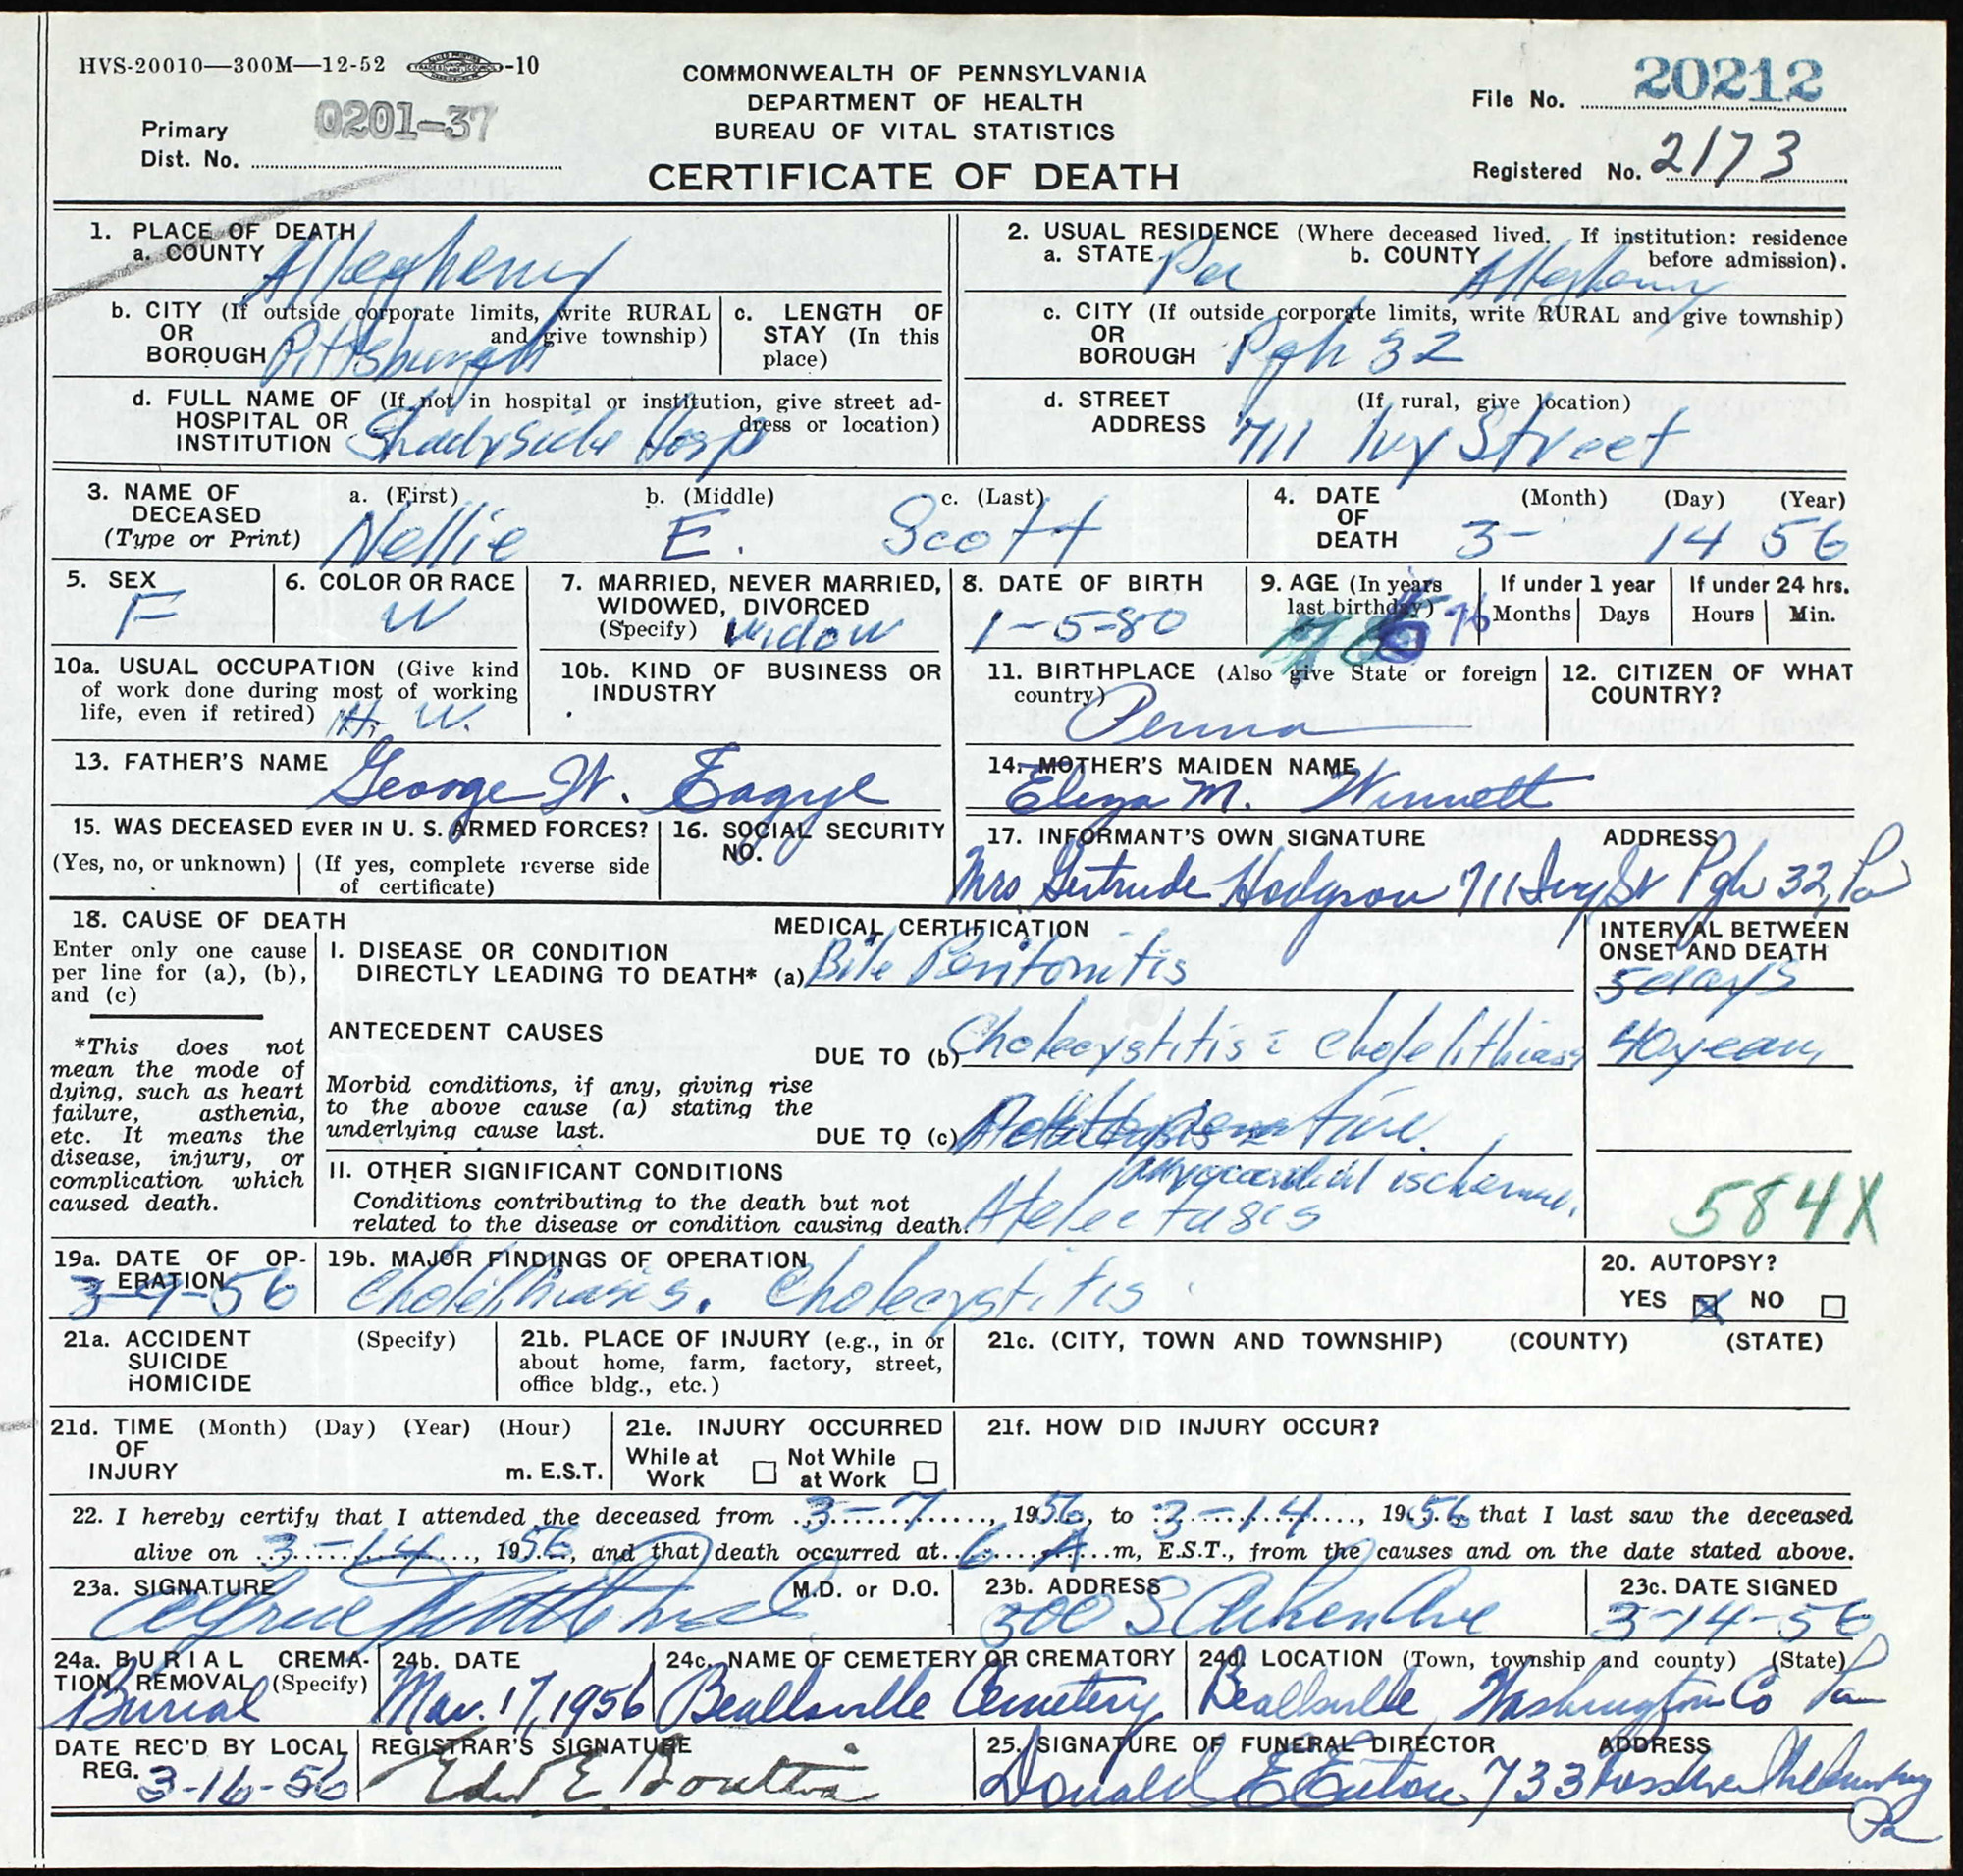 HVS-20010—300M—12-52 -10
COMMONWEALTH OF PENNSYLVANIA
DEPARTMENT OF HEALTH
BUREAU OF VITAL STATISTICS
CERTIFICATE OF DEATH
Primary
Dist. No. 0201-37
File No. 20212
Registered No. 2173
1. PLACE OF DEATH
a. COUNTY Allegheny
b. CITY (If outside corporate limits, write RURAL
OR and give township)
BOROUGH Pittsburgh
c. LENGTH OF
STAY (In this
place)
d. FULL NAME OF (If not in hospital or institution, give street ad-
HOSPITAL OR dress or location)
INSTITUTION Shadyside Hosp
2. USUAL RESIDENCE (Where deceased lived. If institution: residence
before admission).
a. STATE Pa b. COUNTY Allegheny
c. CITY (If outside corporate limits, write RURAL and give township)
OR
BOROUGH Pgh 32
d. STREET (If rural, give location)
ADDRESS 711 Ivy Street
3. NAME OF
DECEASED
(Type or Print)
a. (First) b. (Middle) c. (Last)
Nellie E. Scott
4. DATE
OF
DEATH
(Month) (Day) (Year)
3- 14 56
5. SEX
F
6. COLOR OR RACE
W
7. MARRIED, NEVER MARRIED,
WIDOWED, DIVORCED
(Specify) Widow
8. DATE OF BIRTH
1-5-80
9. AGE (In years
last birthday) 76
If under 1 year
Months Days
If under 24 hrs.
Hours Min.
10a. USUAL OCCUPATION (Give kind
of work done during most of working
life, even if retired) H. W.
10b. KIND OF BUSINESS OR
INDUSTRY
11. BIRTHPLACE (Also give State or foreign
country)
Penna
12. CITIZEN OF WHAT
COUNTRY?
13. FATHER'S NAME
George W. Eagye
14. MOTHER'S MAIDEN NAME
Eliza M. Winnett
15. WAS DECEASED EVER IN U. S. ARMED FORCES?
(Yes, no, or unknown) (If yes, complete reverse side
of certificate)
16. SOCIAL SECURITY
NO.
17. INFORMANT'S OWN SIGNATURE ADDRESS
Mrs Gertrude Hodgson 711 Ivy St Pgh 32, Pa
18. CAUSE OF DEATH
Enter only one cause
per line for (a), (b),
and (c)
*This does not
mean the mode of
dying, such as heart
failure, asthenia,
etc. It means the
disease, injury, or
complication which
caused death.
MEDICAL CERTIFICATION
I. DISEASE OR CONDITION
DIRECTLY LEADING TO DEATH* (a) Bile Peritonitis
ANTECEDENT CAUSES
DUE TO (b) Cholecystitis c̄ Cholelithiasis
Morbid conditions, if any, giving rise
to the above cause (a) stating the
underlying cause last.
DUE TO (c)
II. OTHER SIGNIFICANT CONDITIONS
Conditions contributing to the death but not
related to the disease or condition causing death.
myocardial ischemia.
Atelectasis
INTERVAL BETWEEN
ONSET AND DEATH
5 days
40 years
584X
19a. DATE OF OP-
ERATION
3-9-56
19b. MAJOR FINDINGS OF OPERATION
Cholelithiasis. Cholecystitis
20. AUTOPSY?
YES X NO
21a. ACCIDENT (Specify)
SUICIDE
HOMICIDE
21b. PLACE OF INJURY (e.g., in or
about home, farm, factory, street,
office bldg., etc.)
21c. (CITY, TOWN AND TOWNSHIP) (COUNTY) (STATE)
21d. TIME (Month) (Day) (Year) (Hour)
OF
INJURY m. E.S.T.
21e. INJURY OCCURRED
While at Not While
Work at Work
21f. HOW DID INJURY OCCUR?
22. I hereby certify that I attended the deceased from 3-7, 1956, to 3-14, 1956 that I last saw the deceased
alive on 3-14, 1956, and that death occurred at 6 A m, E.S.T., from the causes and on the date stated above.
23a. SIGNATURE M.D. or D.O.
23b. ADDRESS
300 S Aiken Ave
23c. DATE SIGNED
3-14-56
24a. BURIAL CREMA-
TION, REMOVAL (Specify)
Burial
24b. DATE
Mar. 17, 1956
24c. NAME OF CEMETERY OR CREMATORY
Beallsville Cemetery
24d. LOCATION (Town, township and county) (State)
Beallsville, Washington Co Pa
DATE REC'D BY LOCAL
REG. 3-16-56
REGISTRAR'S SIGNATURE
25. SIGNATURE OF FUNERAL DIRECTOR ADDRESS
Donald E 733
Pa